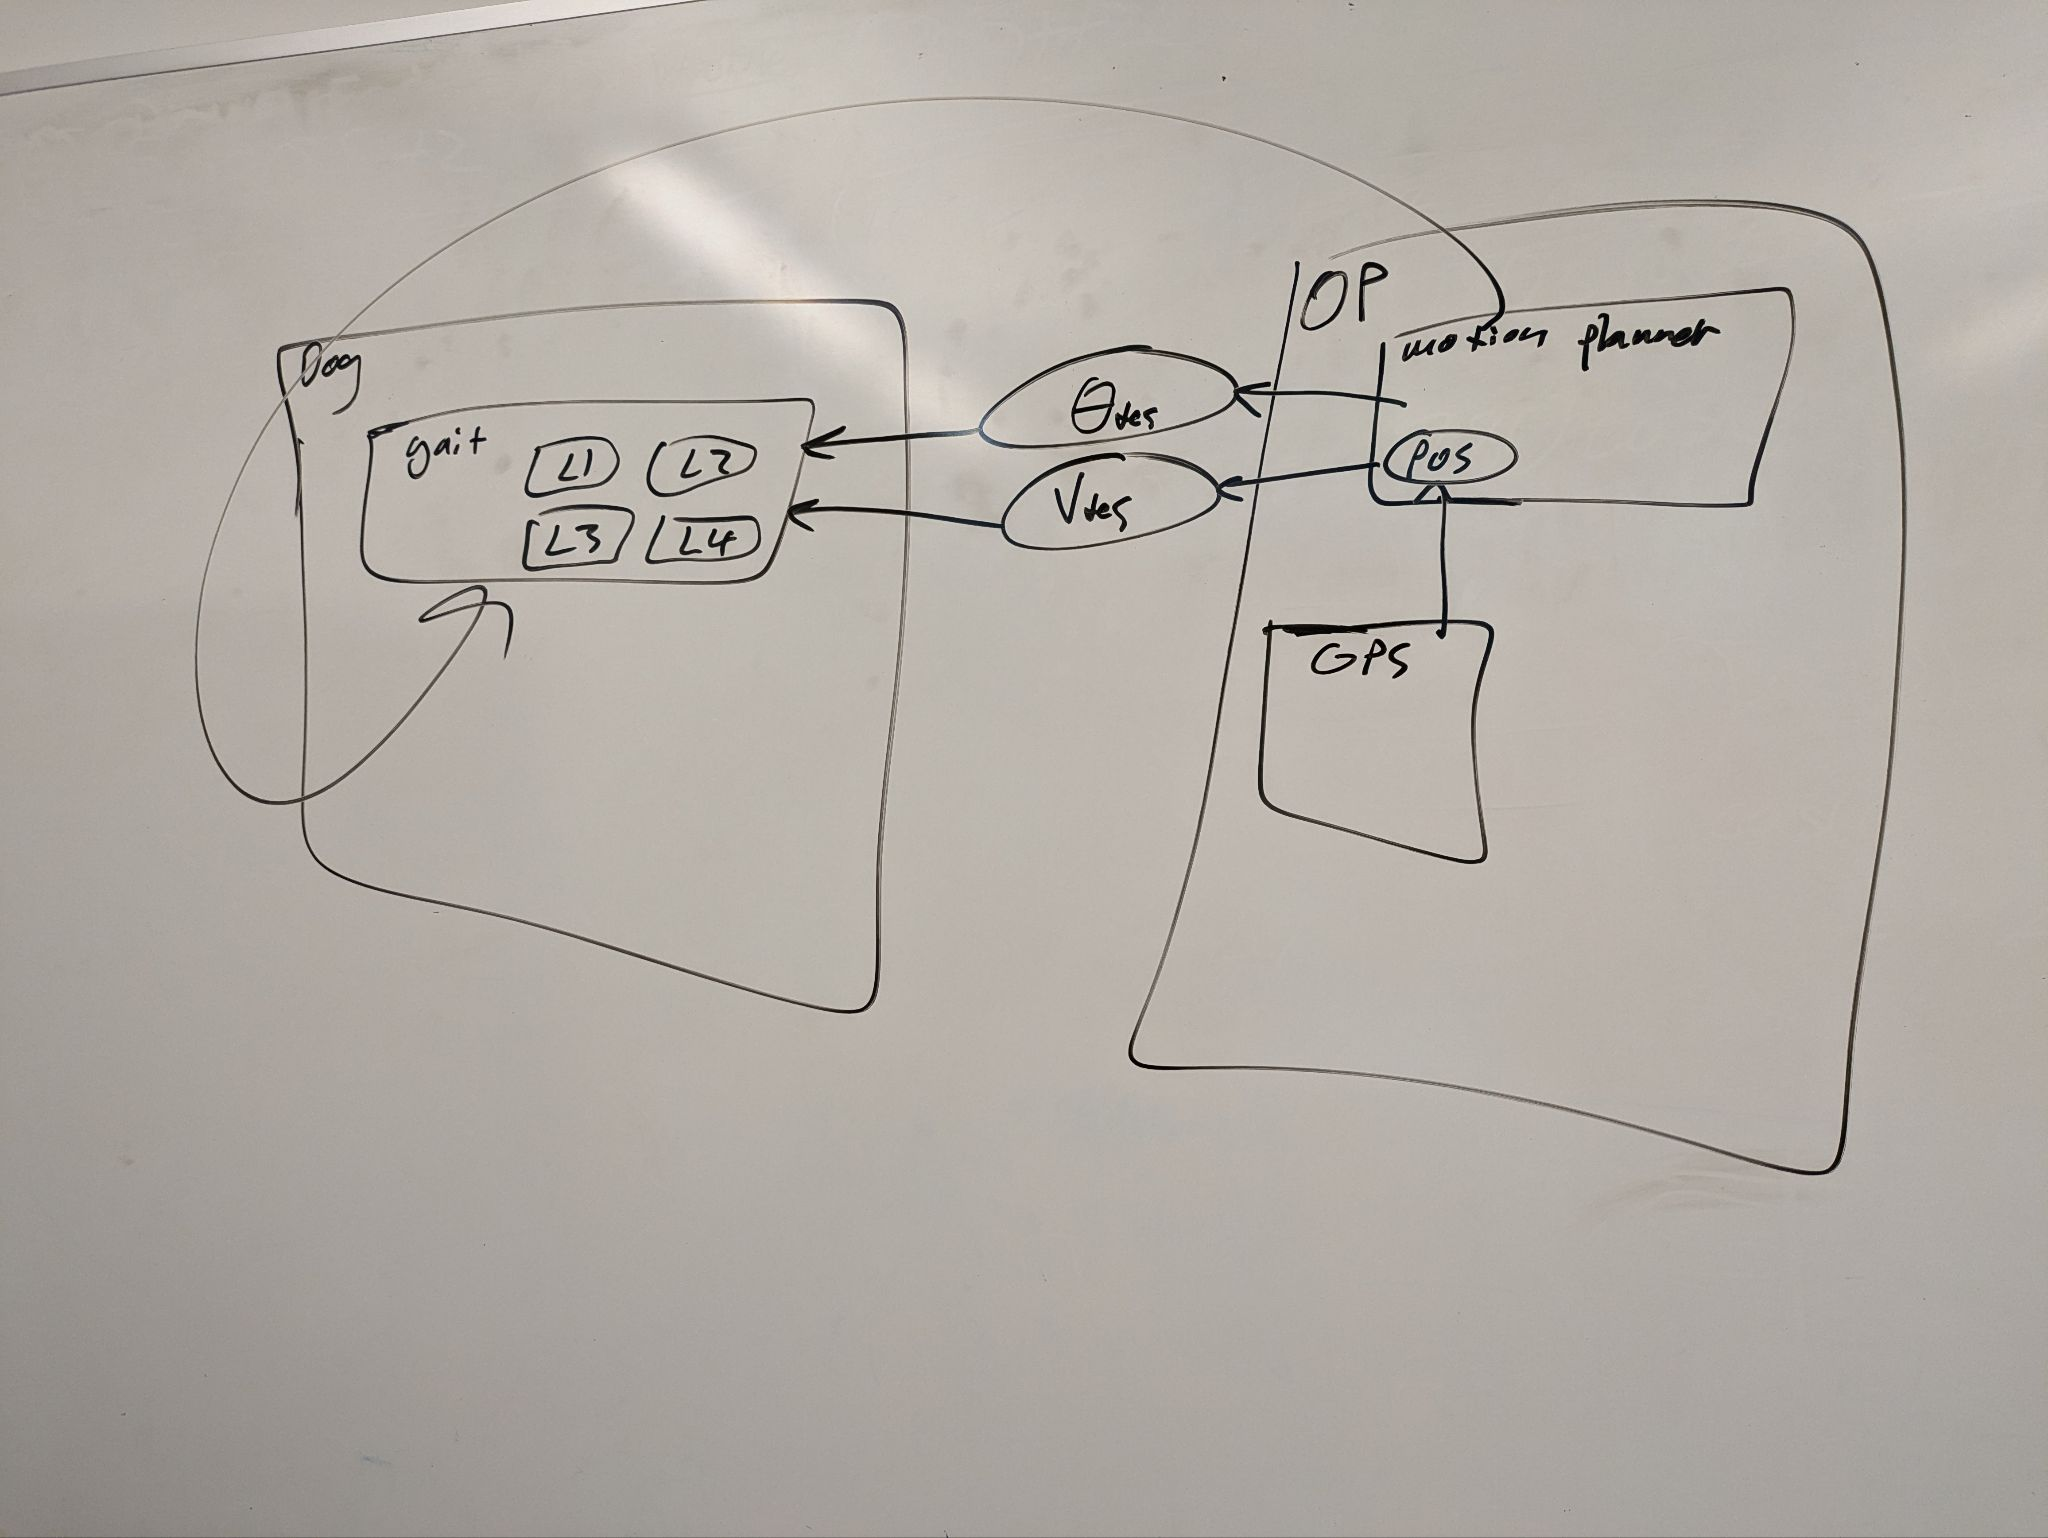 Dog
gait
L1 L2
L3 L4
θdes
Vdes
OP
motion planner
pos
GPS